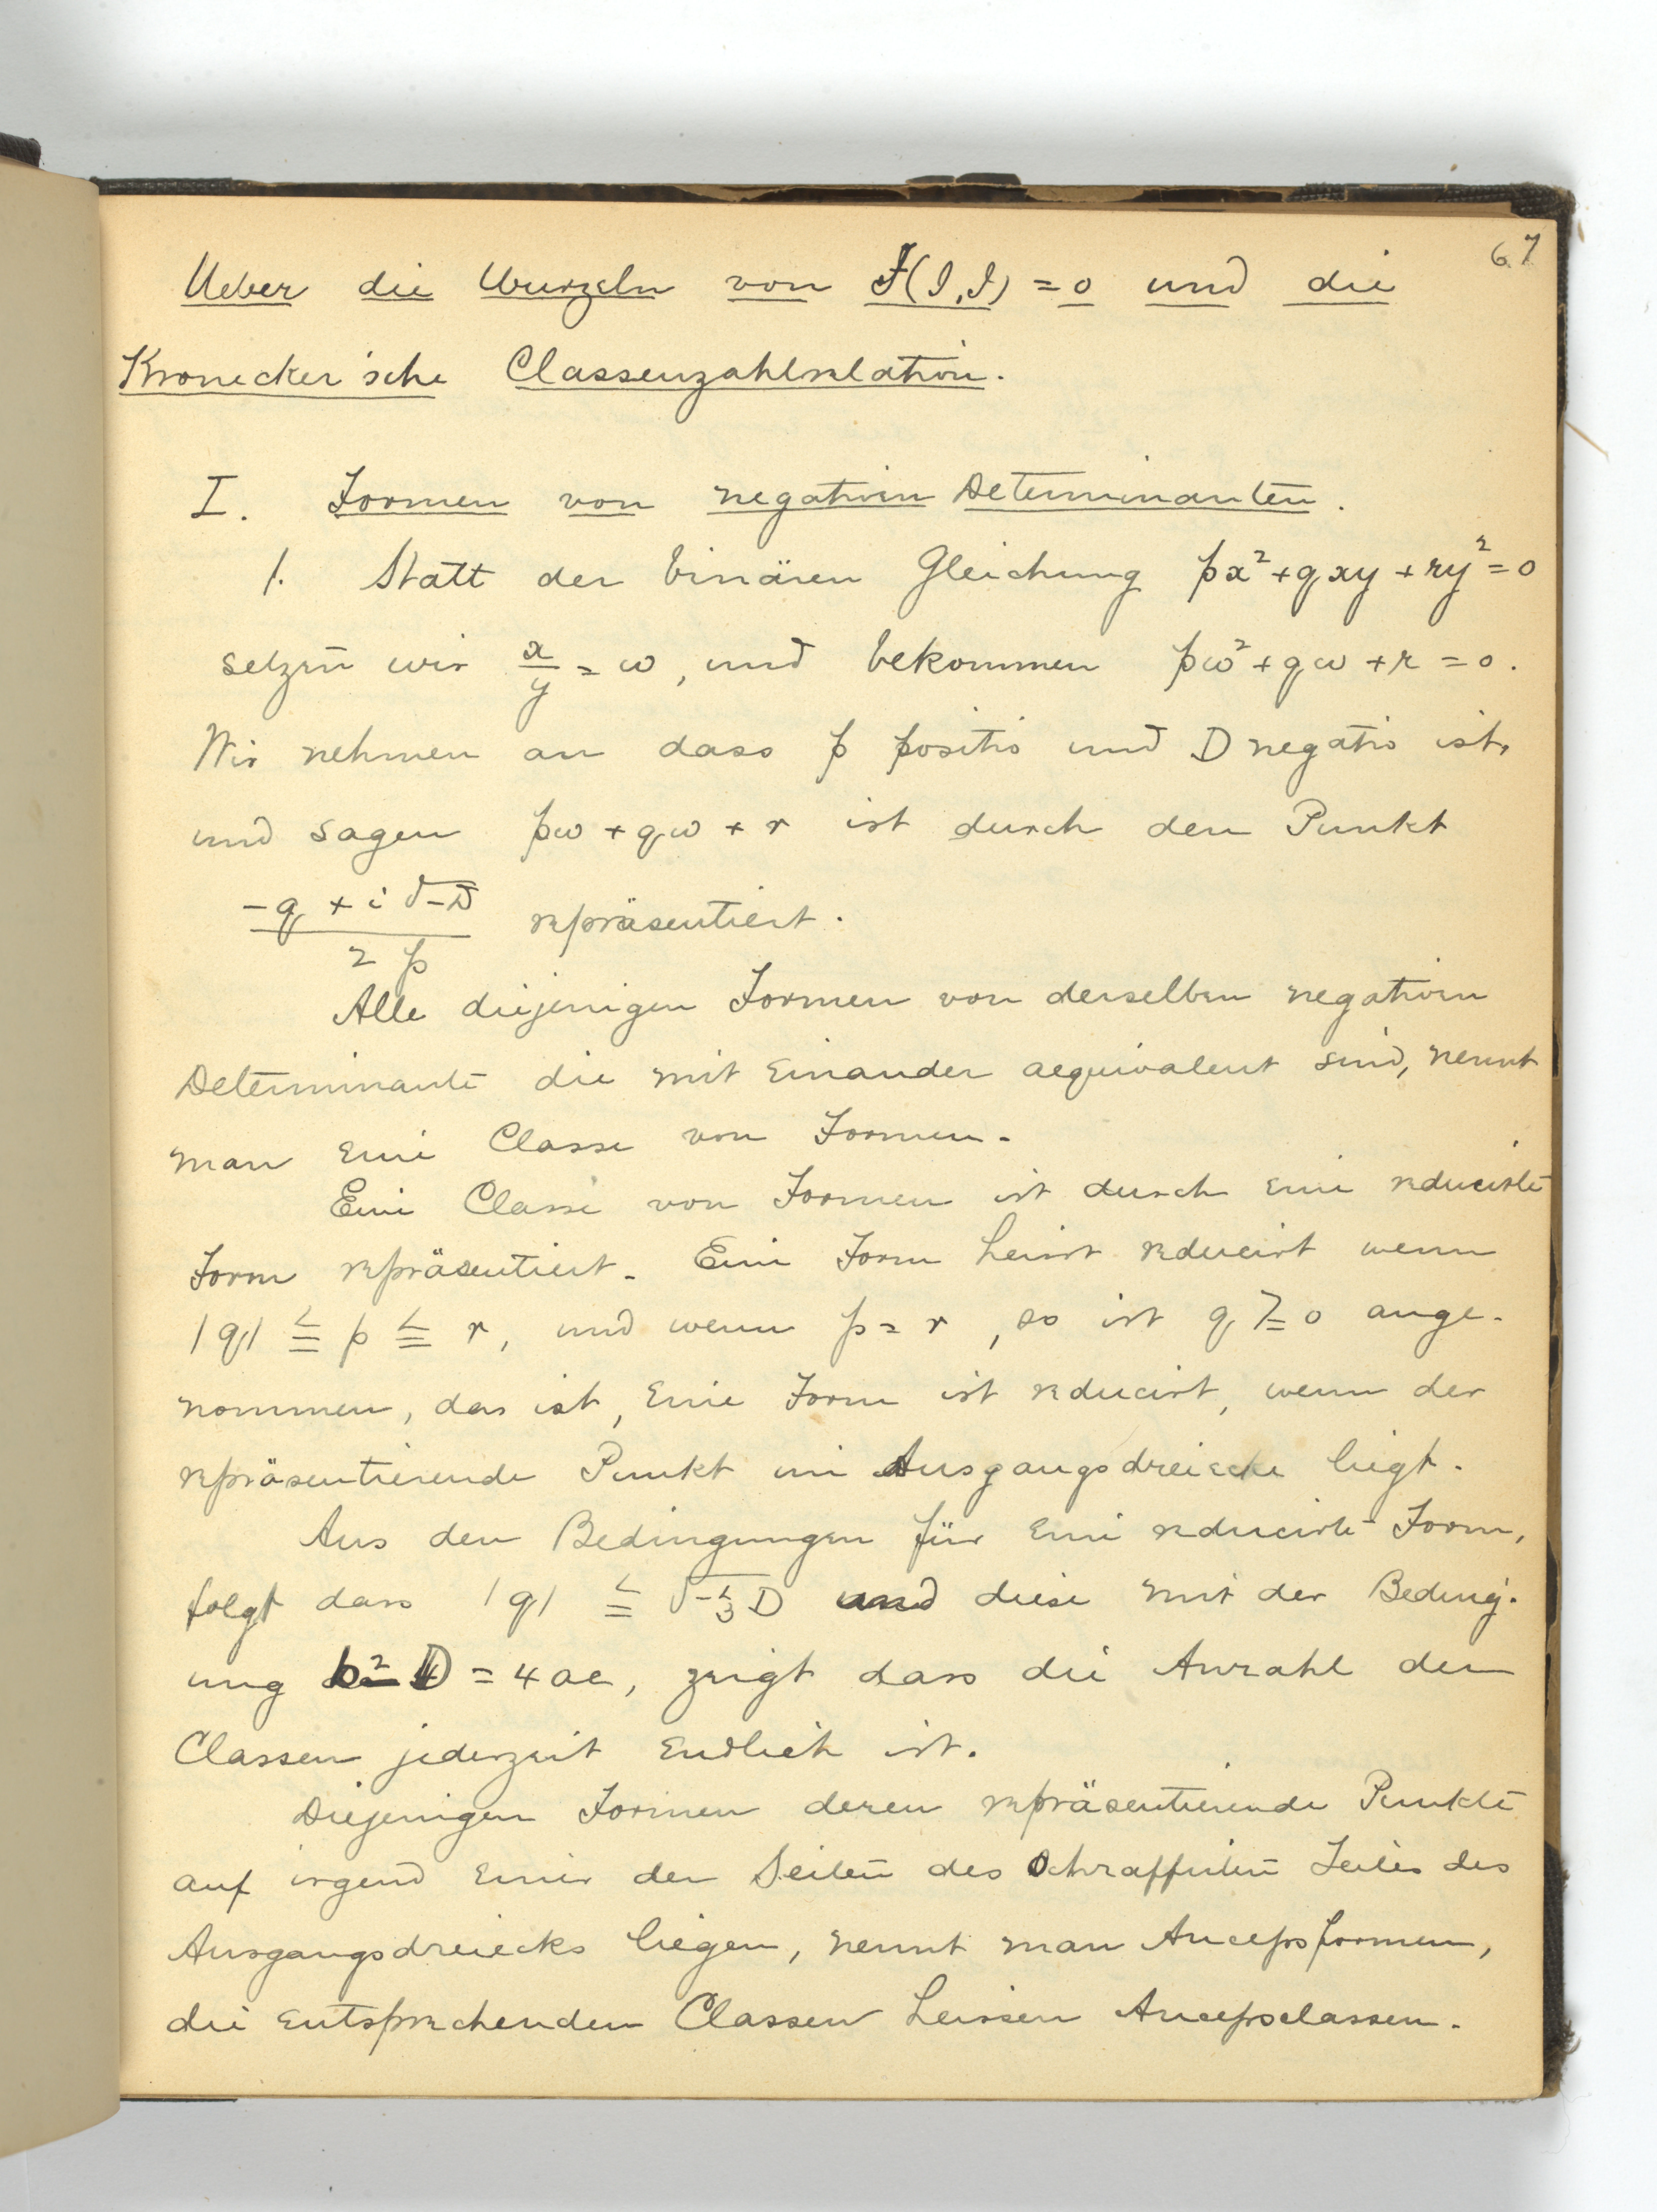 67
Ueber die Wurzeln von F(J,J) = 0 und die
Kronecker'sche Classenzahlrelation.
I. Formen von negativen Determinanten.
1. Statt der binären Gleichung px²+qxy+ry²=0
setzen wir x/y = ω, und bekommen pω²+qω+r=0.
Wir nehmen an dass p positiv und D negativ ist,
und sagen pω+qω+r ist durch den Punkt
(-q+i√-D)/2p repräsentiert.
Alle diejenigen Formen von derselben negativen
Determinante die mit einander aequivalent sind, nennt
man eine Classe von Formen.
Eine Classe von Formen ist durch eine reducirte
Form repräsentiert. Eine Form heisst reducirt wenn
|q| ≦ p ≦ r, und wenn p=r, so ist q ≧ 0 ange-
nommen, das ist, eine Form ist reducirt, wenn der
repräsentierende Punkt im Ausgangsdreiecke liegt.
Aus den Bedingungen für eine reducirte Form,
folgt dass |q| ≦ √-⅓D und diese mit der Beding-
ung b²-D = 4ac, zeigt dass die Anzahl der
Classen jederzeit endlich ist.
Diejenigen Formen deren repräsentierende Punkte
auf irgend einer der Seiten des schraffirten Teiles des
Ausgangsdreiecks liegen, nennt man Ancepsformen,
die entsprechenden Classen heissen Ancepsclassen.